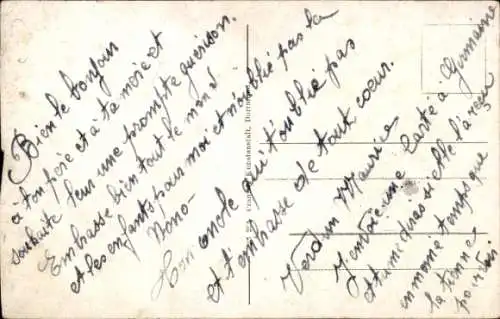 Bien le bonjour
à ton père et à ta mère et
souhaite leur une prompte guérison.
Embrasse bien tout le monde
et les enfants pour moi et n'oublie pas ta
Nono-
oncle qui t'oublie pas
et t'embrasse de tout coeur.
Verdun Maurice
J'envoie une carte a Germaine
et tu me diras si elle l'a reçu
en même temps que
la tienne